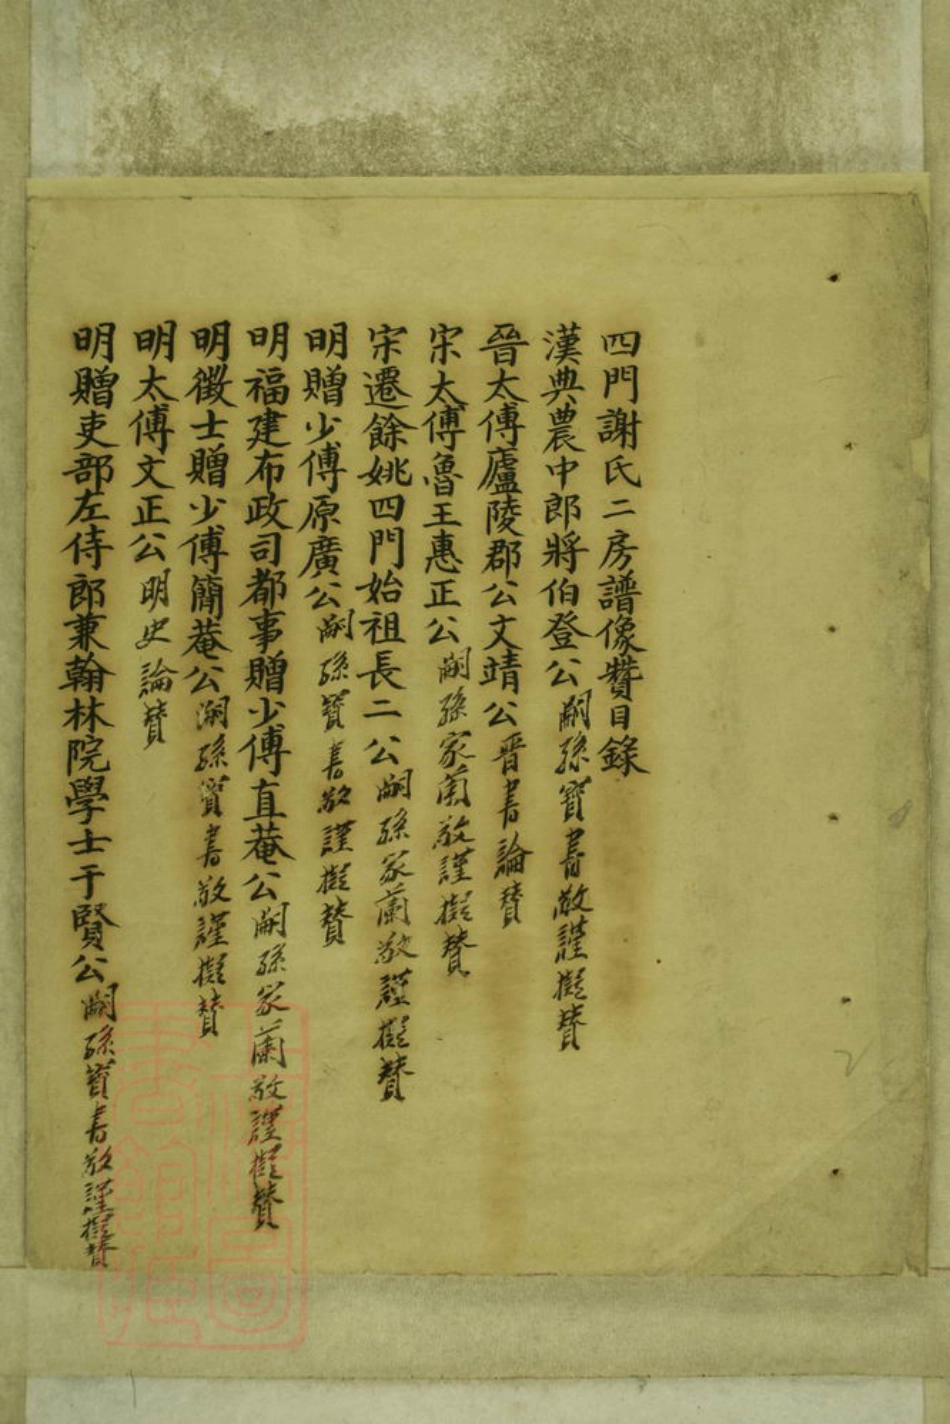 四門謝氏二房譜像贊目錄
漢典農中郎將伯登公嗣孫寶書敬謹擬贊
晉太傅廬陵郡公文靖公晉書論贊
宋太傅魯王惠正公嗣孫家蘭敬謹擬贊
宋遷餘姚四門始祖長二公嗣孫家蘭敬謹擬贊
明贈少傅原廣公嗣孫寶書敬謹擬贊
明福建布政司都事贈少傅直菴公嗣孫家蘭敬謹擬贊
明徵士贈少傅簡菴公嗣孫寶書敬謹擬贊
明太傅文正公明史論贊
明贈吏部左侍郎兼翰林院學士于賢公嗣孫寶書敬謹擬贊